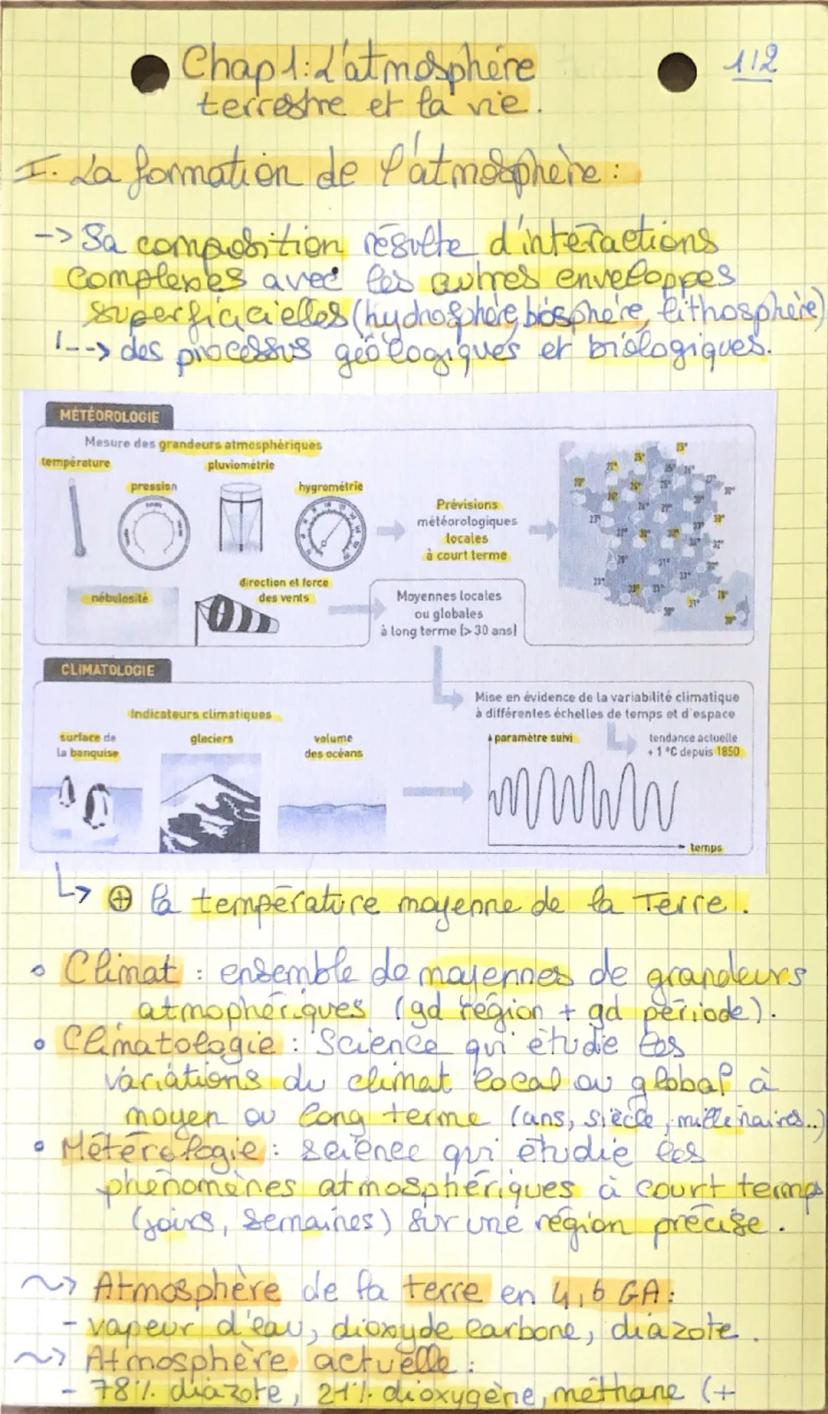 Chap 1: L'atmosphère
1/2
terrestre et la vie.
I. La formation de l'atmosphère :
-> Sa composition résulte d'intéractions
complexes avec les autres enveloppes
superficicielles (hydrosphère, biosphère, lithosphère)
--> des processus géologiques et biologiques.
MÉTÉOROLOGIE
Mesure des grandeurs atmosphériques
température
pluviométrie
pression
hygrométrie
Prévisions
météorologiques
locales
à court terme
nébulosité
direction et force
des vents
Moyennes locales
ou globales
à long terme (> 30 ans)
CLIMATOLOGIE
Mise en évidence de la variabilité climatique
à différentes échelles de temps et d'espace
Indicateurs climatiques
surface de
la banquise
glaciers
volume
des océans
paramètre suivi
tendance actuelle
+ 1 °C depuis 1850
temps
↳ ⊕ la température moyenne de la Terre.
• Climat : ensemble de moyennes de grandeurs
atmophériques (gd région + gd période).
• Climatologie : Science qui étudie les
variations du climat local ou global à
moyen ou long terme (ans, siècle, millénaires..)
• Météréologie : science qui étudie les
phénomènes atmosphériques à court temps
(jours, semaines) sur une région précise.
~> Atmosphère de la terre en 4,6 GA :
- vapeur d'eau, dioxyde carbone, diazote.
~> Atmosphère actuelle :
- 78% diazote, 21% dioxygène, méthane (+